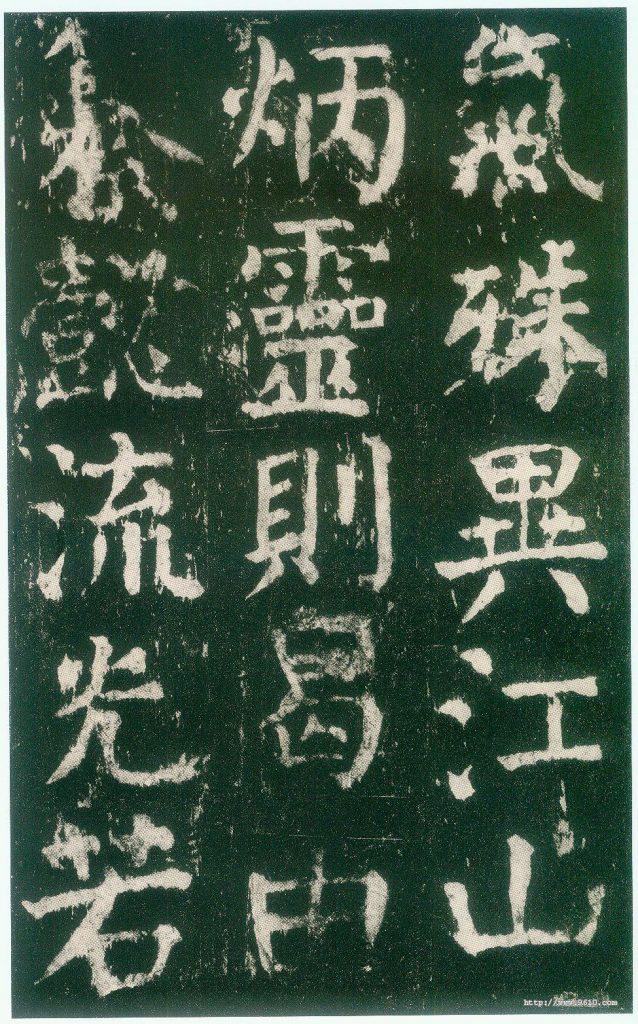 氣殊異江山
炳靈則曷由
懿流光若
http://www.9610.com